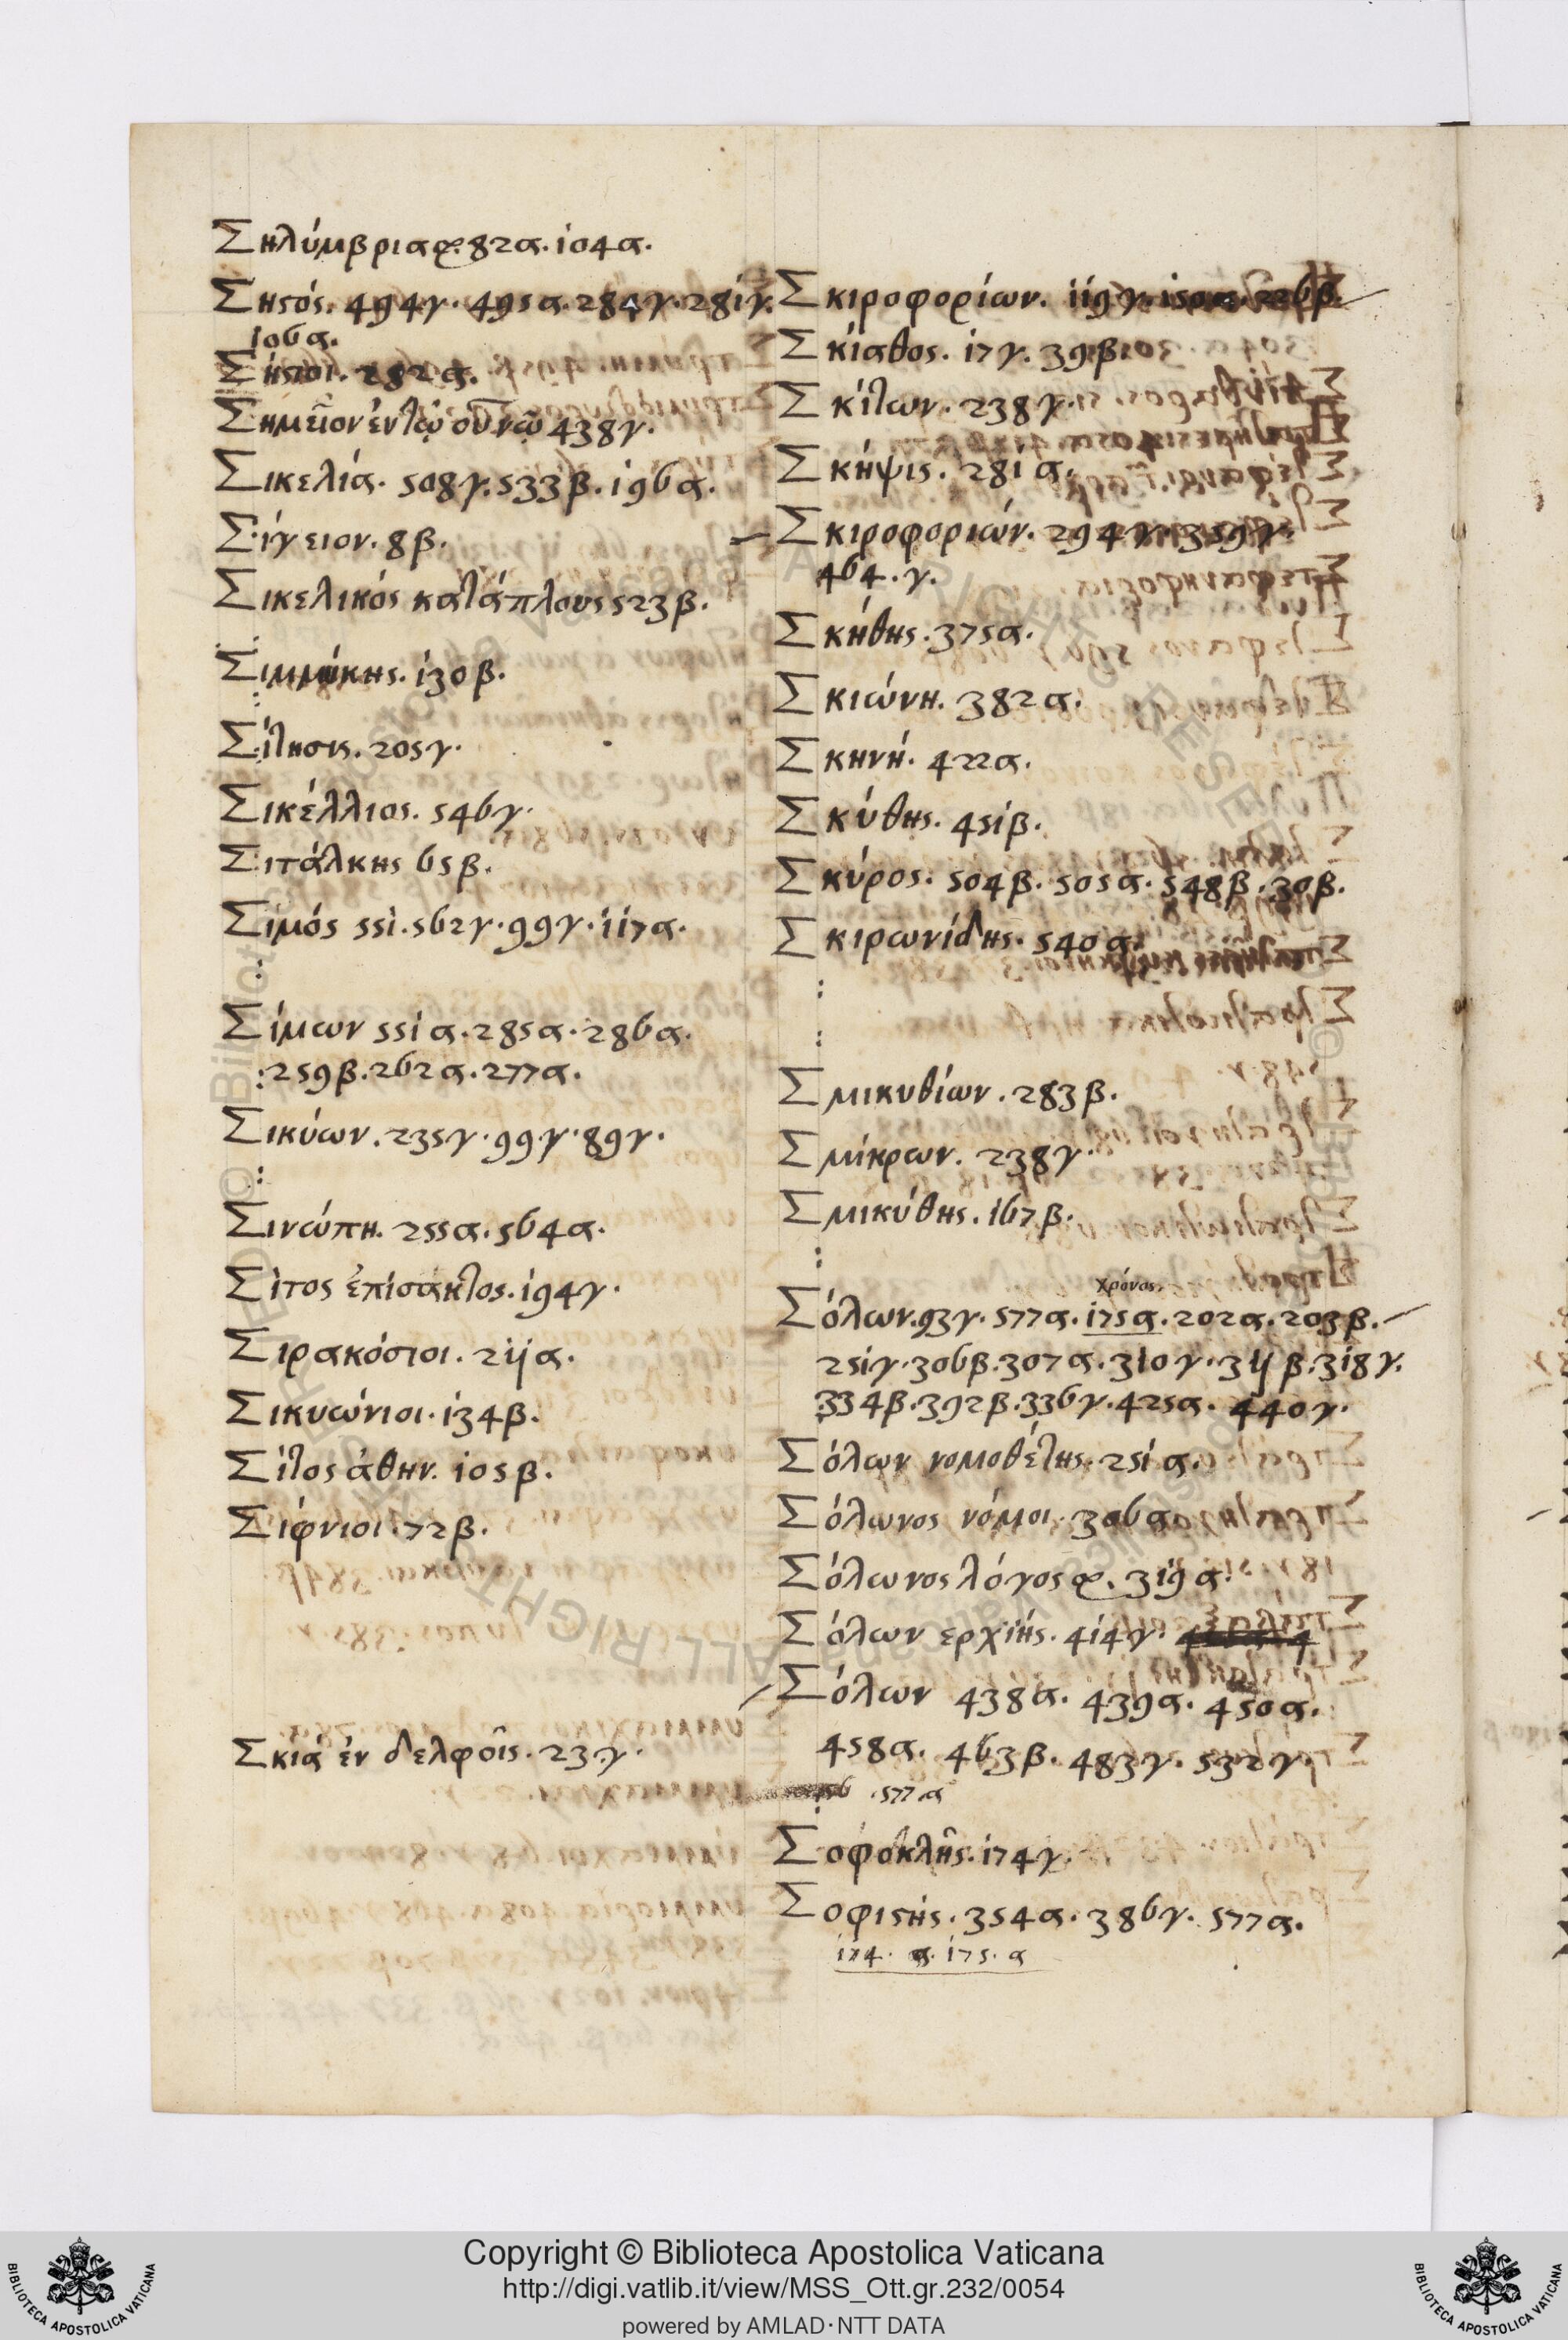 Σηλύμβρια. 82α. 104α.
Σηςός. 494γ. 495α. 284γ. 281γ.
106α.
Σήςιοι. 282α.
Σημεῖον ἐν τῷ οὐνῷ 438γ.
Σικελία. 508γ. 533β. 196α.
Σίγειον. 8β.
Σικελικός κατάπλους 523β.
Σιμμύκης. 130β.
Σίτησις. 205γ.
Σικέλλιος. 546γ.
Σιτάλκης 65β.
Σιμός 551. 562γ. 99γ. 117α.
Σίμων 551α. 285α. 286α.
259β. 262α. 277α.
Σικύων. 235γ. 99γ. 89γ.
Σινώπη. 255α. 564α.
Σῖτος ἐπίσακτος. 194γ.
Σιρακόσιοι. 211α.
Σικυώνιοι. 134β.
Σίτος ἀθην. 105β.
Σίφνιοι. 72β.
Σκιά ἐν δελφοῖς. 23γ.
Σκιροφορίων. 119γ. 150α. 226β.
Σκίαθος. 17γ. 39β.
Σκίτων. 238γ.
Σκήψις. 281α.
Σκιροφοριών. 294γ. 359γ.
464.γ.
Σκήθης. 375α.
Σκιώνη. 382α.
Σκηνή. 422α.
Σκύθης. 451β.
Σκύρος. 504β. 505α. 548β. 30β.
Σκιρωνίδης. 540α.
Σμικυθίων. 283β.
Σμίκρων. 238γ.
Σμικύθης. 167β.
χρόνος.
Σόλων. 93γ. 577α. 175α. 202α. 203β.
251γ. 306β. 307α. 310γ. 311β. 318γ.
334β. 392β. 336γ. 425α. 440γ.
Σόλων νομοθέτης. 251α.
Σόλωνος νόμοι. 306α.
Σόλωνος λόγος. 319α.
Σόλων ερχιής. 414γ.
Σόλων 438α. 439α. 450α.
458α. 463β. 483γ. 532γ.
.577.α
Σοφοκλῆς. 174γ.
Σοφιςής. 354α. 386γ. 577α.
174. α. 175. α
Copyright © Biblioteca Apostolica Vaticana
http://digi.vatlib.it/view/MSS_Ott.gr.232/0054
powered by AMLAD·NTT DATA
BIBLIOTECA APOSTOLICA VATICANA
BIBLIOTECA APOSTOLICA VATICANA